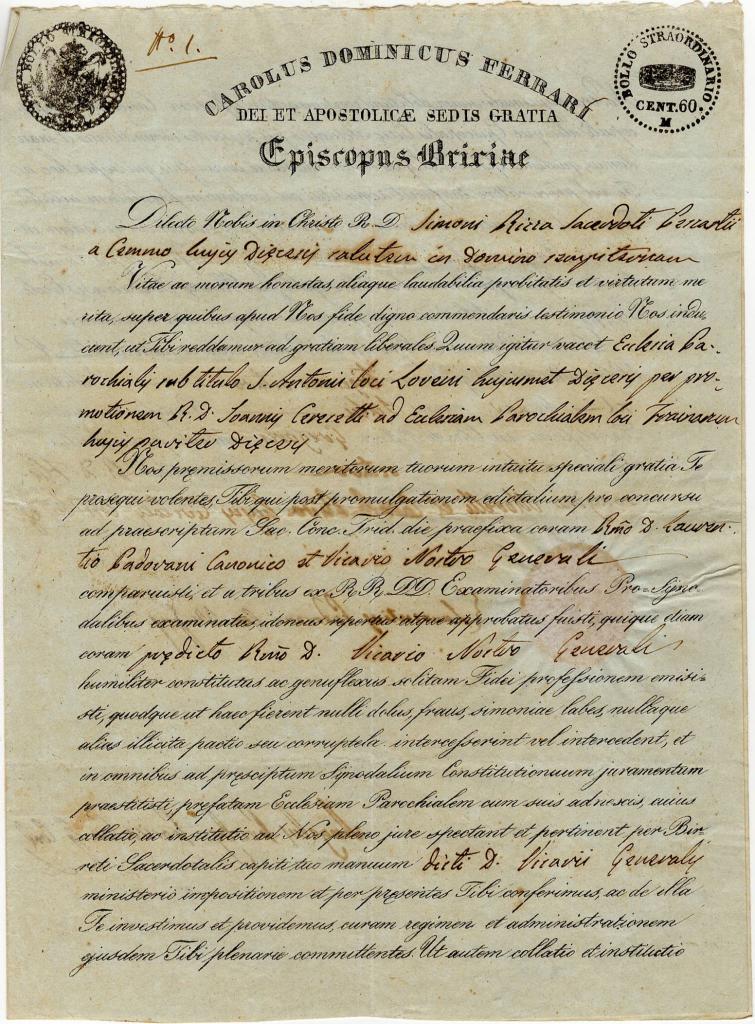 No. 1.
BOLLO STRAORDINARIO
CENT. 60.
M
CAROLUS DOMINICUS FERRARI
DEI ET APOSTOLICÆ SEDIS GRATIA
Episcopus Brixiae
Dilecto Nobis in Christo R. D. Simoni Rizza Sacerdoti
a Cemmo hujus Diœcesis salutem in Domino sempiternam
Vitae ac morum honestas, aliaque laudabilia probitatis et virtutum me
rita, super quibus apud Nos fide digno commendaris testimonio Nos indu-
cunt, ut Tibi reddamur ad gratiam liberales. Quum igitur vacet Ecclesia Pa-
rochialis sub titulo S. Antonii loci Loveni hujusmet Diœcesis per pro-
motionem R. D. Joannis Ceresetti ad Ecclesiam Parochialem loci
hujus pariter Diœcesis
Nos pręmissorum meritorum tuorum intuitu speciali gratia Te
prosequi volentes, Tibi qui post promulgationem edictalium pro concursu
ad praescriptam Sac. Conc. Trid. die praefixa coram Rmo D. Lauren-
tio Padovani Canonico et Vicario Nostro Generali
comparuisti, et a tribus ex R.R. D.D. Examinatoribus Pro=Syno
dalibus examinatus, idoneus repertus atque approbatus fuisti, quique etiam
coram prędicto Rmo D. Vicario Nostro Generali
humiliter constitutus ac genuflexus solitam Fidei professionem emisi-
sti, quodque ut haec fierent nulli dolus, fraus, simoniae labes, nullaque
alius illicita pactio seu corruptela intercesserint vel intercedent, et
in omnibus ad pręsciptum Synodalium Constitutionum juramentum
praestitisti, pręfatam Ecclesiam Parochialem cum suis adnexis, cuius
collatio, ac institutio ad Nos pleno jure spectant et pertinent per Bir-
reti Sacerdotalis capiti tuo manuum dicti D. Vicarii Generalis
ministerio impositionem et per pręsentes Tibi conferimus, ac de illa
Te investimus et providemus, curam regimen et administrationem
ejusdem Tibi plenarie committentes. Ut autem collatio et institutio